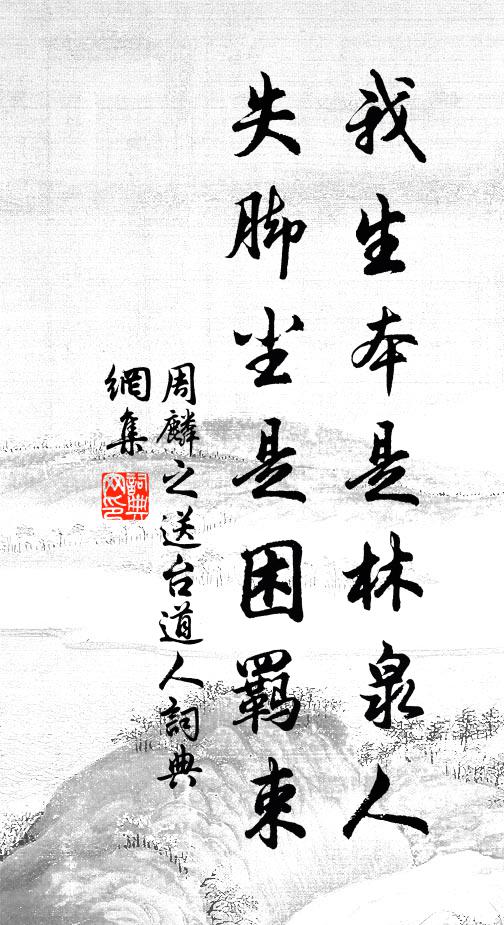 我生本是林泉人
失脚尘是困羁束
周麟之送台道人詞典
網集
詞典
网印